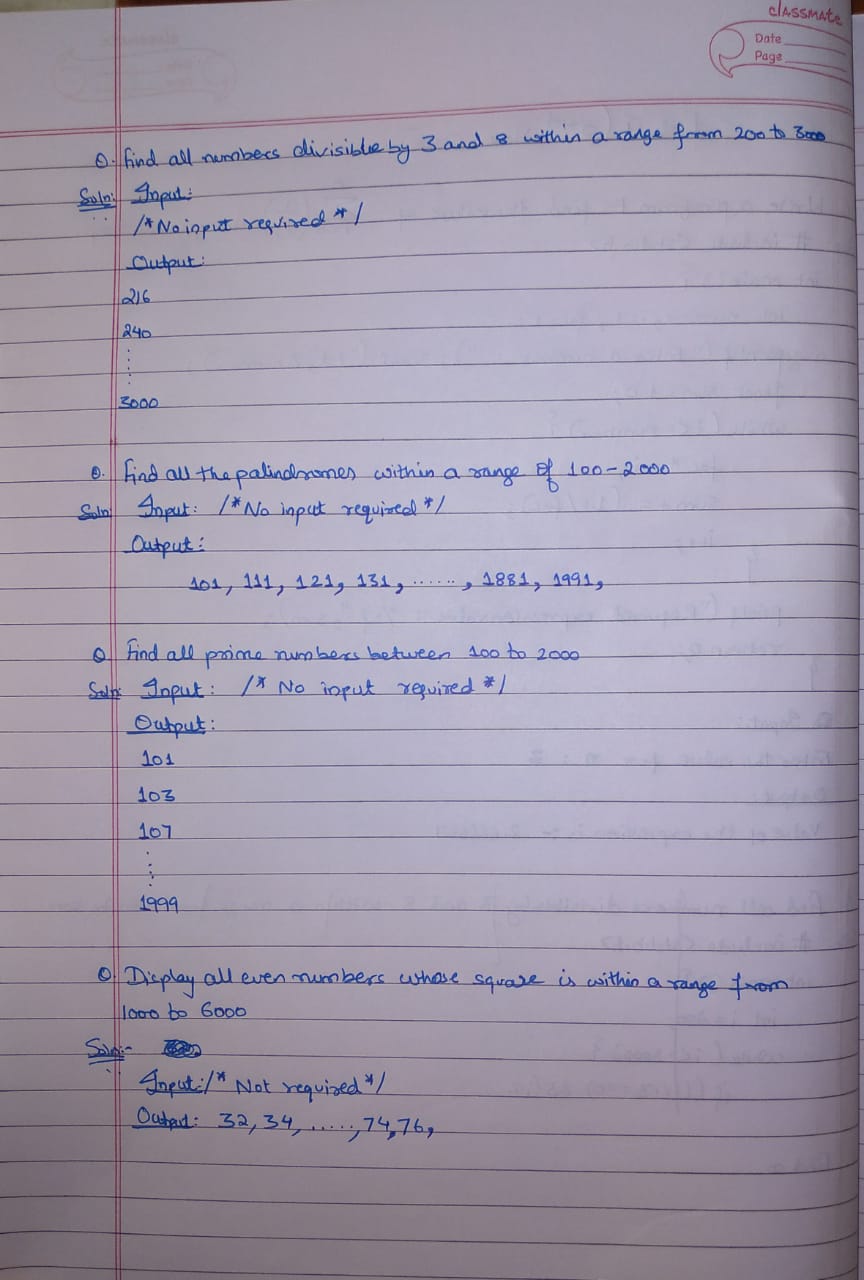 classmate
Date
Page
Q. Find all numbers divisible by 3 and 8 within a range from 200 to 3000
Soln: Input:
/* No input required */
Output:
216
240
......
3000
Q. Find all the palindromes within a range of 100-2000
Soln: Input: /* No input required */
Output:
101, 111, 121, 131, ......, 1881, 1991,
Q. Find all prime numbers between 100 to 2000
Soln: Input: /* No input required */
Output:
101
103
107
......
1999
Q. Display all even numbers whose square is within a range from
1000 to 6000
Soln:-
Input:/* Not required */
Output: 32, 34, ....., 74, 76,